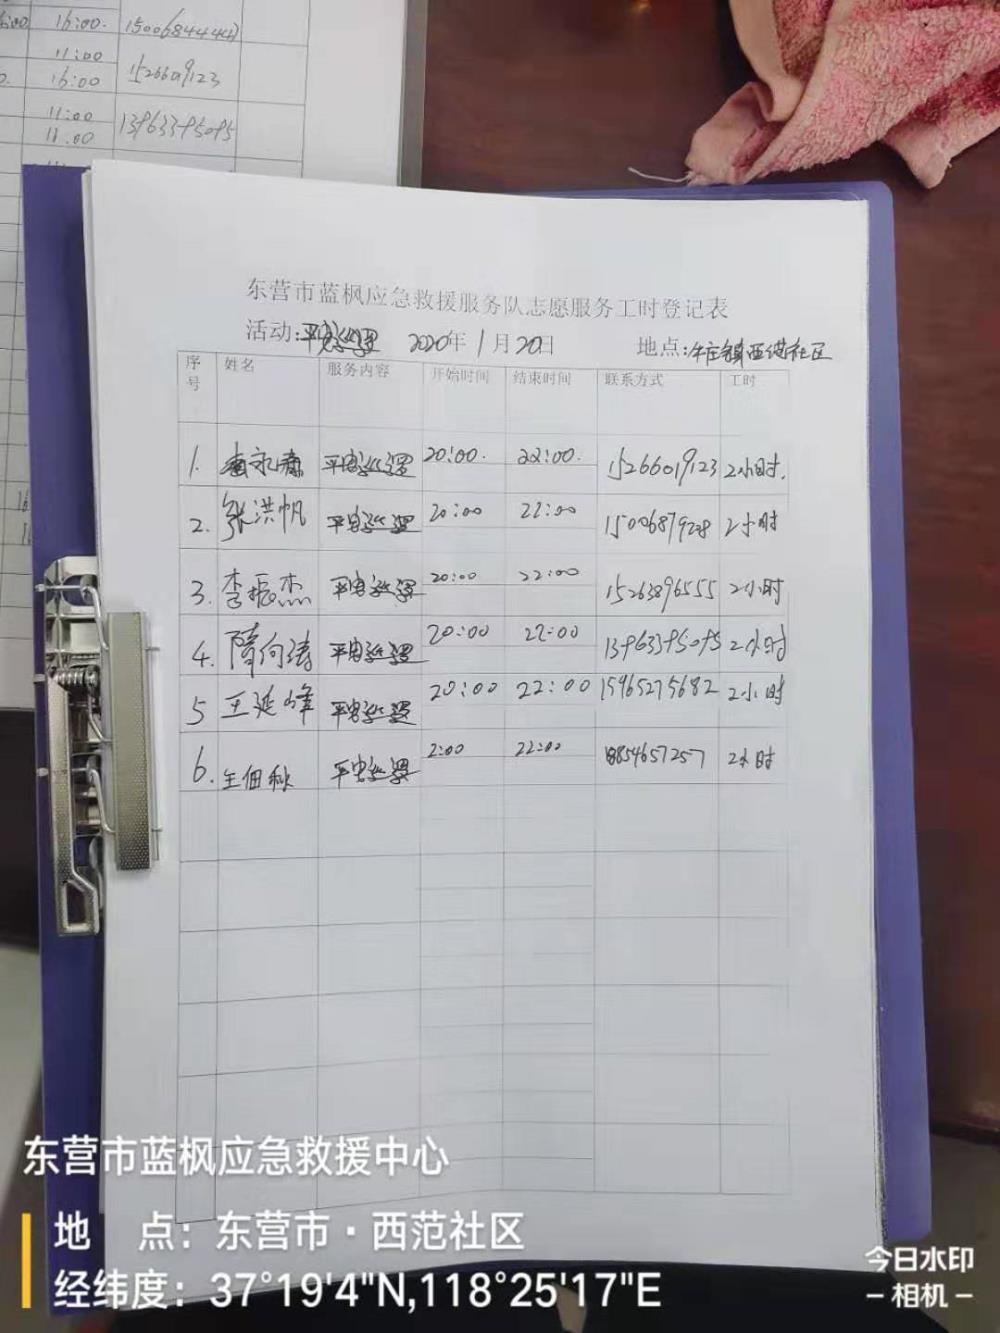 16:00. 15006844441
11:00
16:00 15266019123
11:00
11:00 13963395095
东营市蓝枫应急救援服务队志愿服务工时登记表
活动:平安巡逻 2020年1月20日 地点:牛庄镇西范社区
序号 姓名 服务内容 开始时间 结束时间 联系方式 工时
1. 永 平安巡逻 20:00. 22:00. 15266019123 2小时.
2. 张洪帆 平安巡逻 20:00 22:00 15006879228 2小时
3. 李振杰 平安巡逻 20:00 22:00 15263896555 2小时
4. 隋向涛 平安巡逻 20:00 22:00 13963395095 2小时
5 王延峰 平安巡逻 20:00 22:00 15965275682 2小时
6. 王佃秋 平安巡逻 2:00 22:00 18854657257 2小时
东营市蓝枫应急救援中心
地 点: 东营市·西范社区
经纬度: 37°19'4"N,118°25'17"E
今日水印
相机